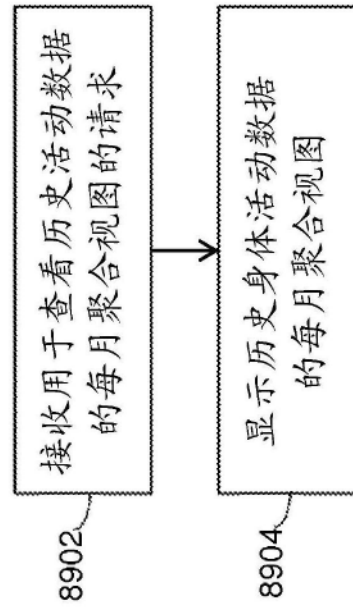 8902
接收用于查看历史活动数据
的每月聚合视图的请求
8904
显示历史身体活动数据
的每月聚合视图